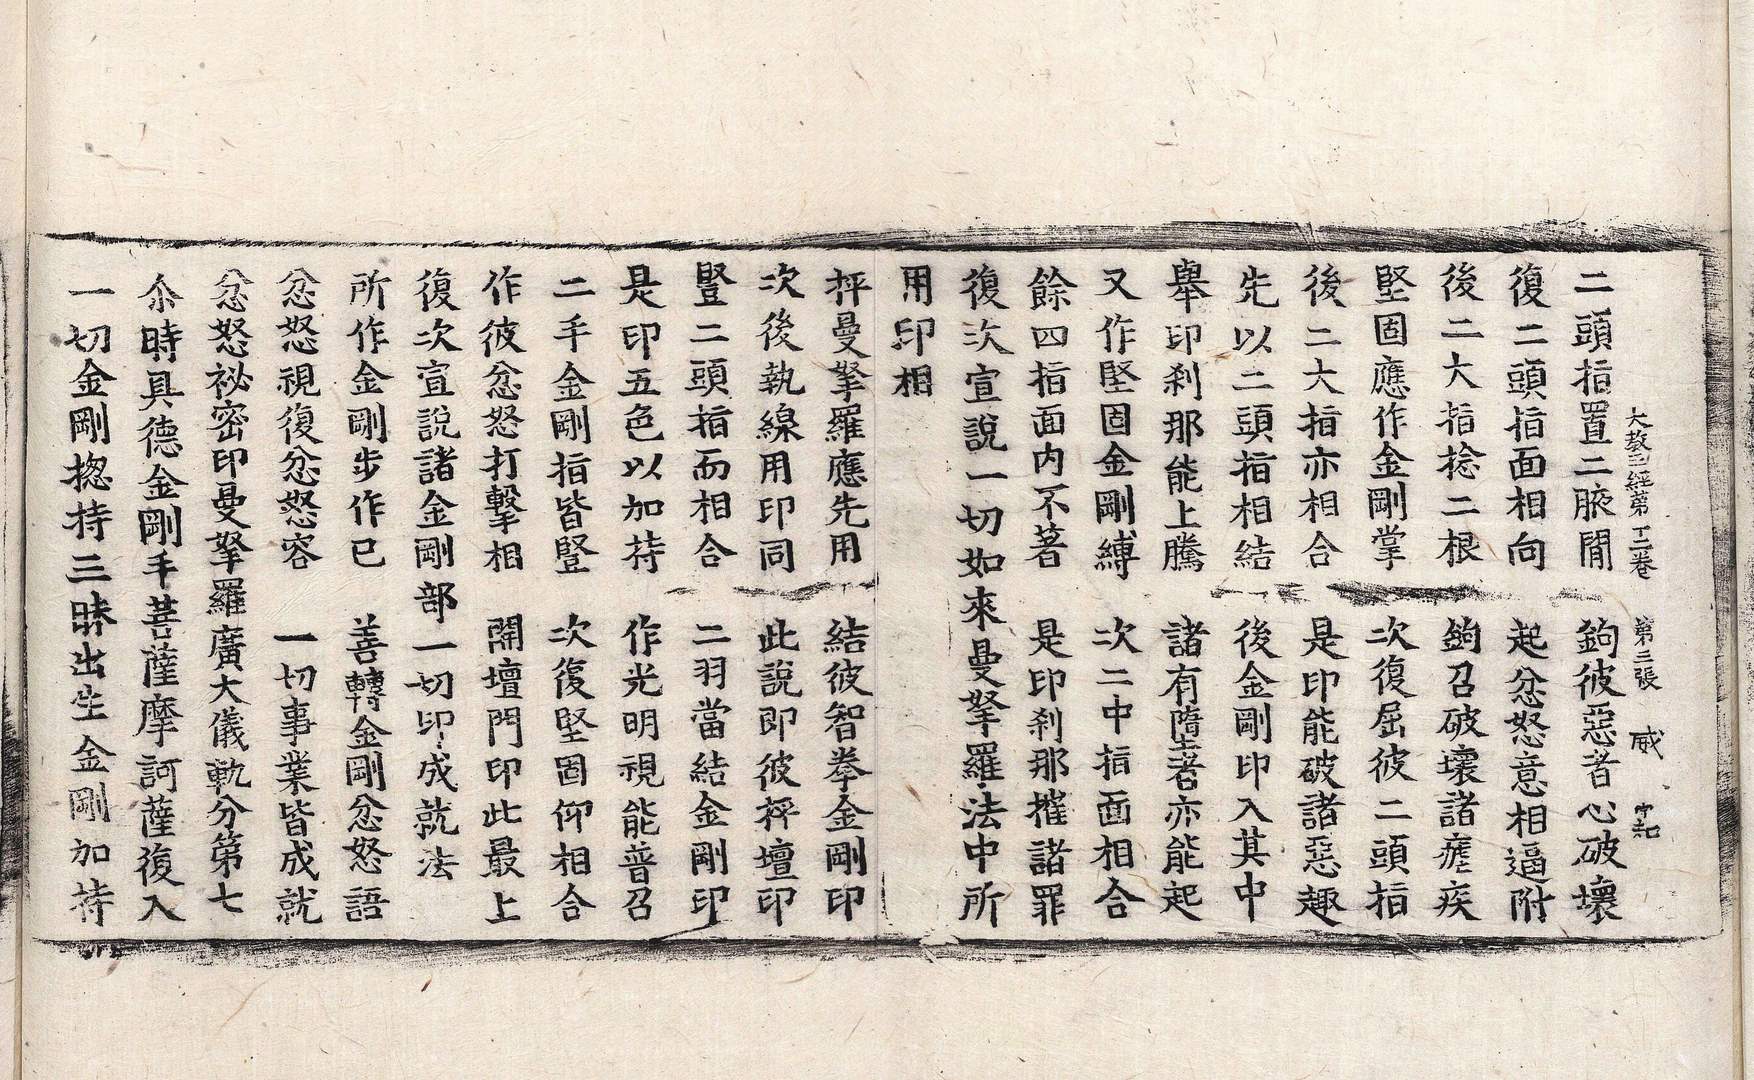 大教王經第十二卷 第三張 威 守和
二頭指置二腋間 鉤彼惡者心破壞
復二頭指面相向 起忿怒意相逼附
後二大指捻二根 鉤召破壞諸瘧疾
堅固應作金剛掌 次復屈彼二頭指
後二大指亦相合 是印能破諸惡趣
先以二頭指相結 後金剛印入其中
舉印刹那能上騰 諸有墮者亦能起
又作堅固金剛縛 次二中指面相合
餘四指面內不著 是印刹那摧諸罪
復次宣說一切如來曼拏羅法中所
用印相
抨曼拏羅應先用 結彼智拳金剛印
次後執線用印同 此說即彼抨壇印
豎二頭指而相合 二羽當結金剛印
是印五色以加持 作光明視能普召
二手金剛指皆豎 次復堅固仰相合
作彼忿怒打擊相 開壇門印此最上
復次宣說諸金剛部一切印成就法
所作金剛步作已 善轉金剛忿怒語
忿怒視復忿怒容 一切事業皆成就
忿怒祕密印曼拏羅廣大儀軌分第七
尒時具德金剛手菩薩摩訶薩復入
一切金剛揔持三昧出生金剛加持